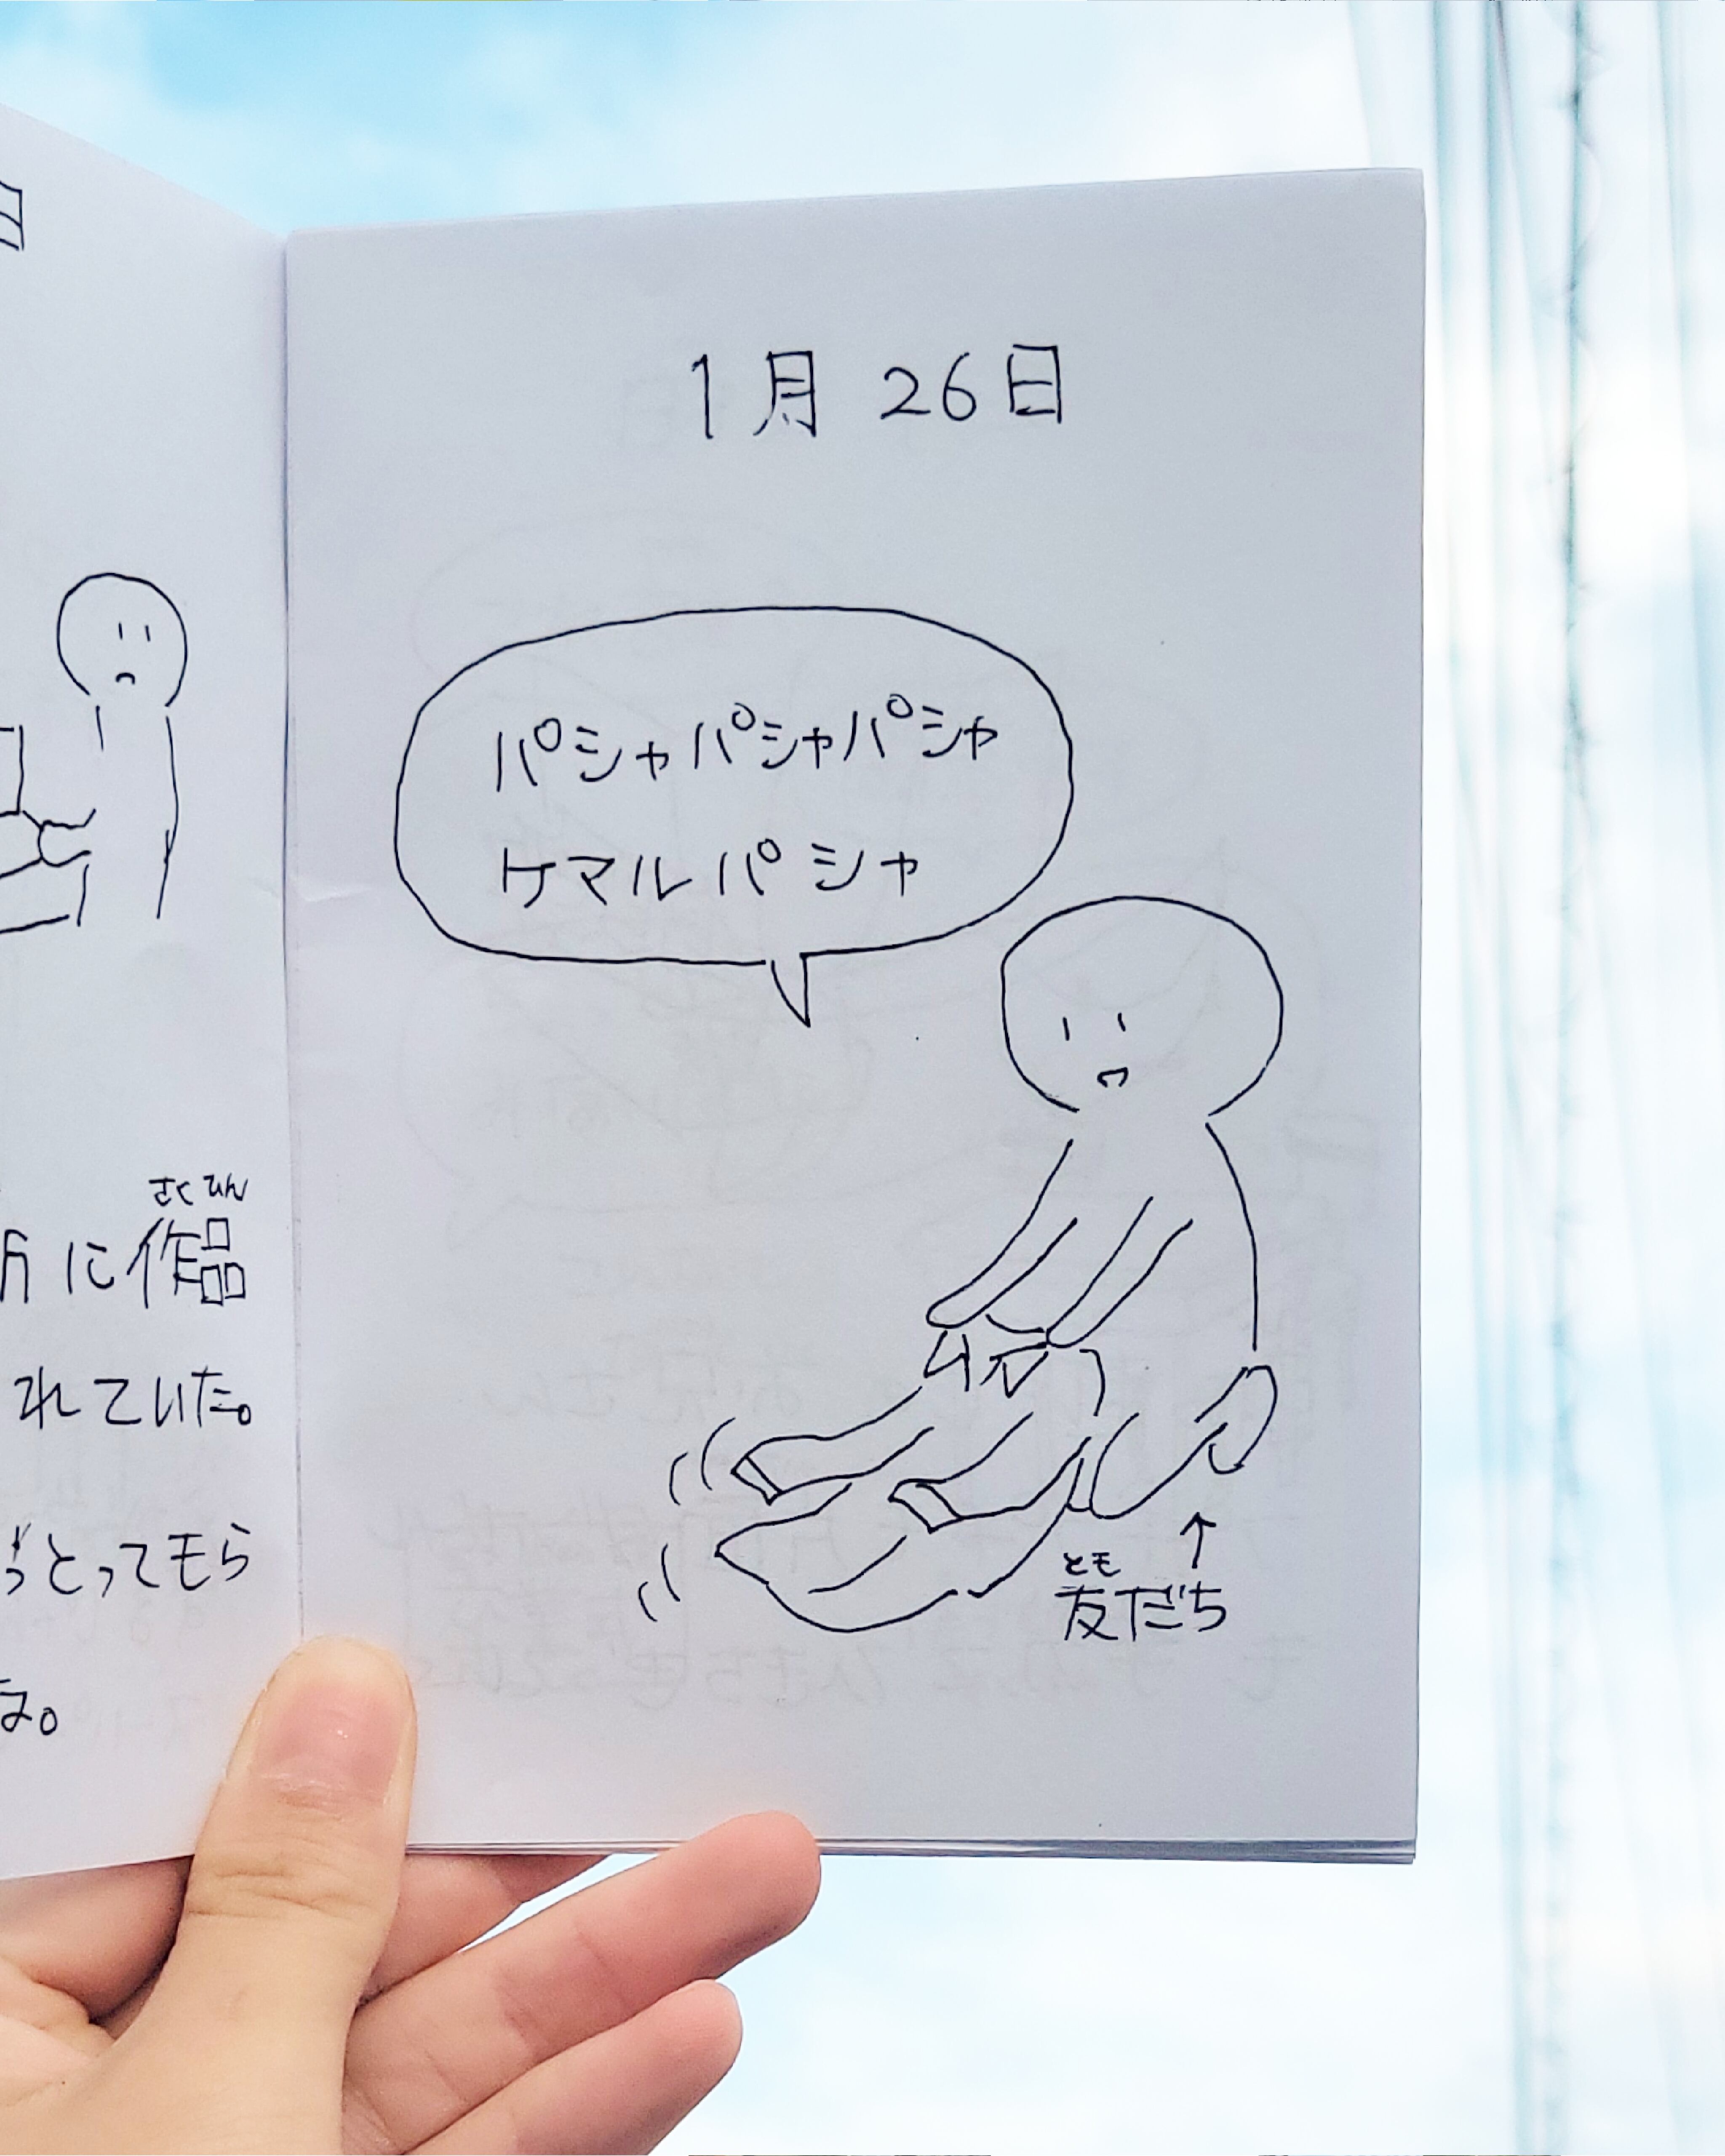 日
さくひん
に作品
れていた。
とってもら
な。
1月26日
パシャパシャパシャ
ケマルパシャ
とも
友だち